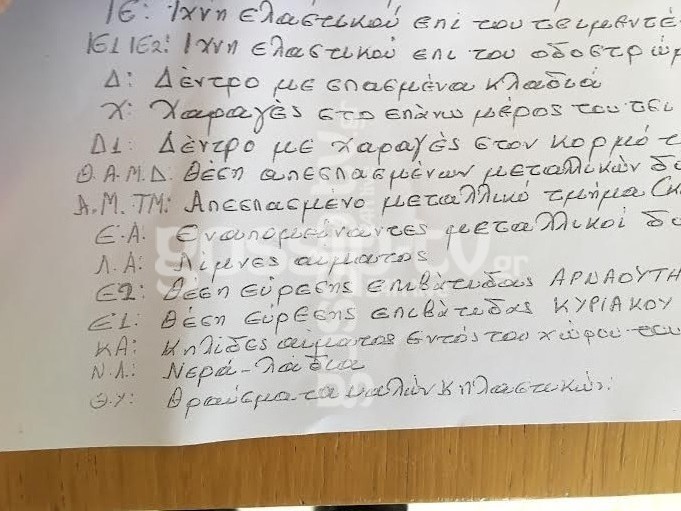 ΙΕ: Ίχνη ελαστικού επί του τσιμεντέ
ΙΕ1 ΙΕ2: Ίχνη ελαστικού επι του οδοστρώμ
Δ: Δέντρο με σπασμένα κλαδιά
Χ: Χαραγές στο επάνω μέρος του τσι
Δ1: Δέντρο με χαραγές στον κορμό τ
Θ.Α.Μ.Δ: Θέση απεσπασμένων μεταλλικών δο
Α.Μ.ΤΜ: Απεσπασμένο μεταλλικό τμήμα (κ
Ε.Α: Εναπομείναντες μεταλλικοί δο
Λ.Α: Λίμνες αίματος
Ε2: Θέση εύρεσης επιβάτιδας ΑΡΝΑΟΥΤΗ
Ε1: Θέση εύρεσης επιβάτιδας ΚΥΡΙΑΚΟΥ
ΚΑ: Κηλίδες αίματος εντός του χώρου του
Ν.Λ: Νερά-λάδια
Θ.Υ: Θραύσματα υαλών κ πλαστικών.
gossip-tv.gr